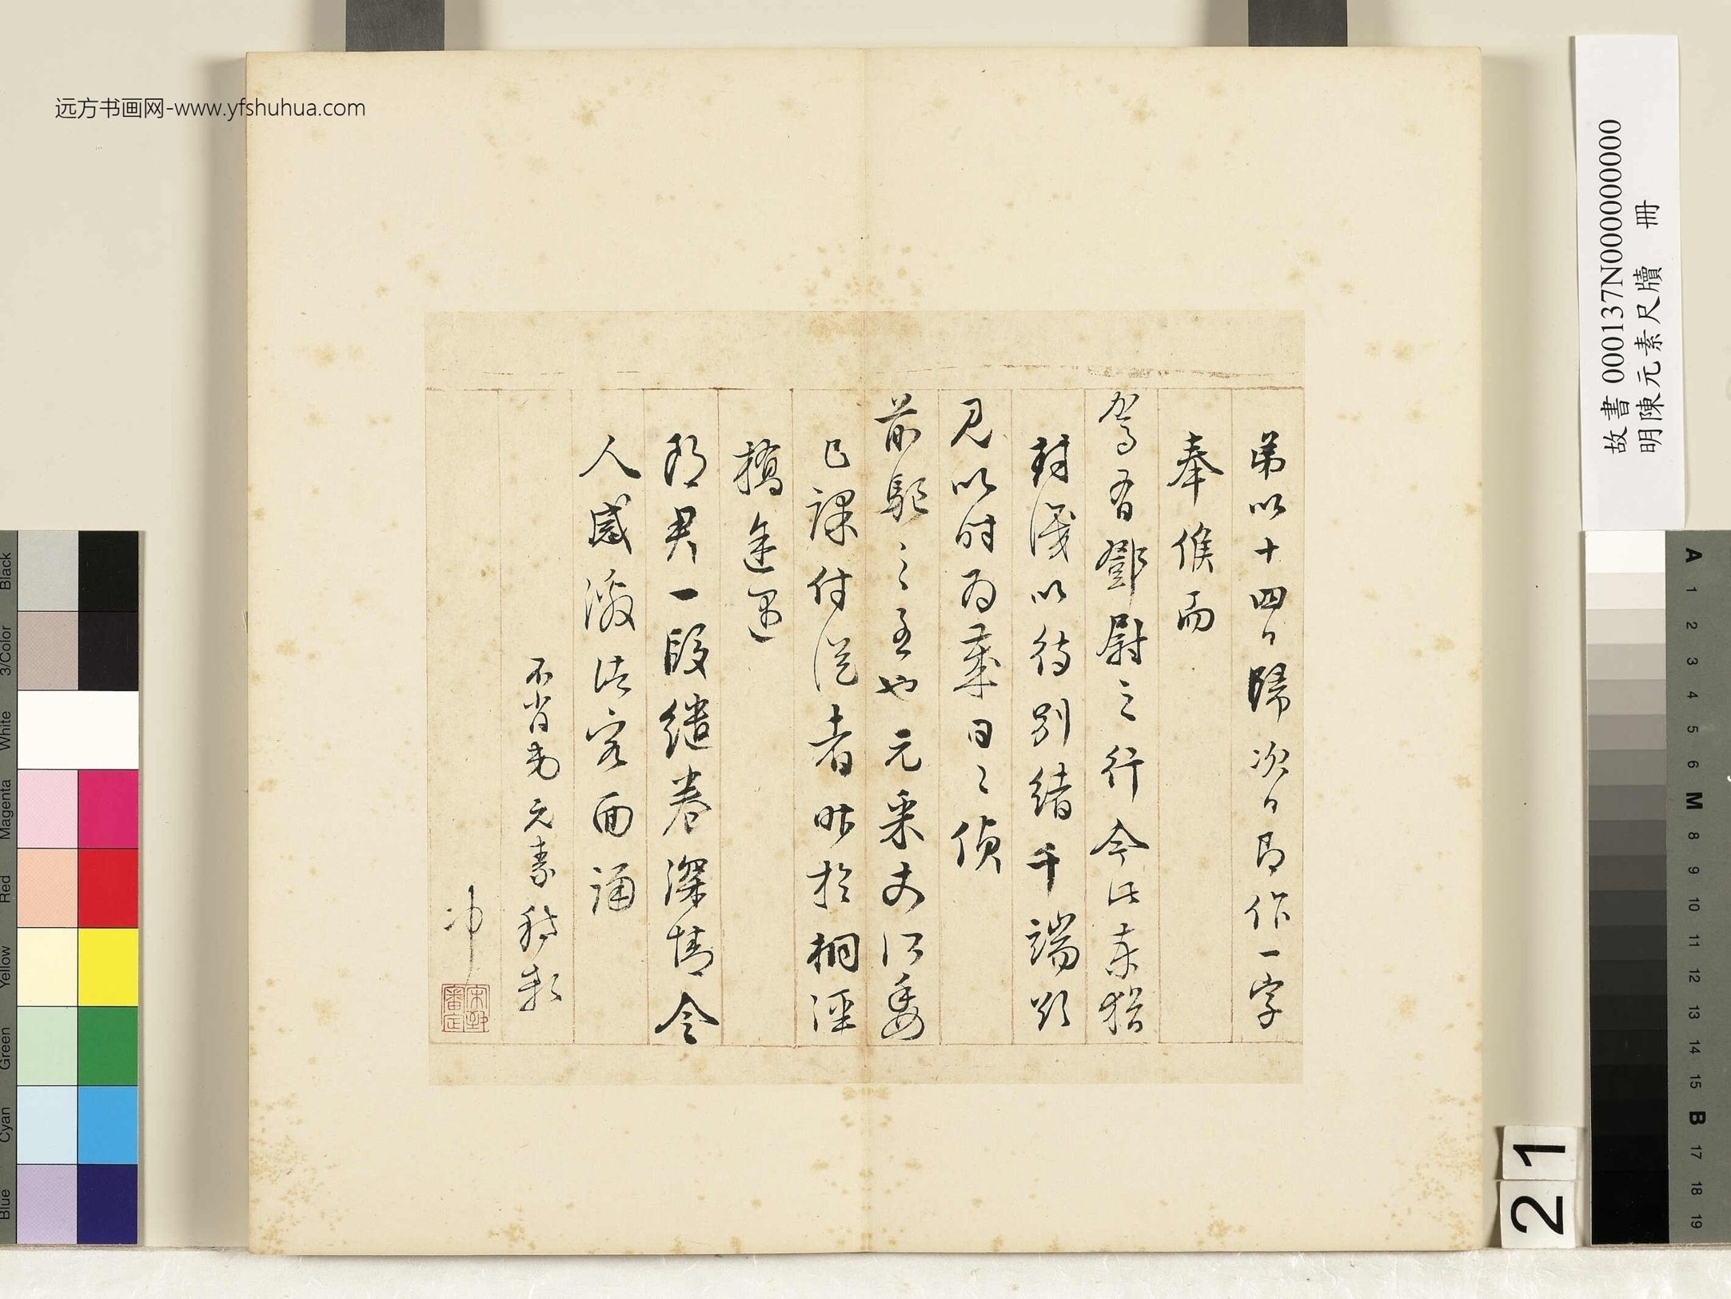 远方书画网-www.yfshuhua.com
故書 000137N000000000
明陳元素尺牘 冊
弟以十四日歸次日即作一字
奉候而
駕有鄧尉之行今此來猶
封識以待別緒千端欲
見以時為歲日々偵
前驅之至也元采丈所委
已課付從者昨於桐涇
橋途遇
君一段繾綣深情令
人感激法容面誦
不肖弟元素頓
冲
21
Black
3/Color
White
Magenta
Red
Yellow
Green
Cyan
Blue
A
1
2
3
4
5
6
M
8
9
10
11
12
13
14
15
B
17
18
19